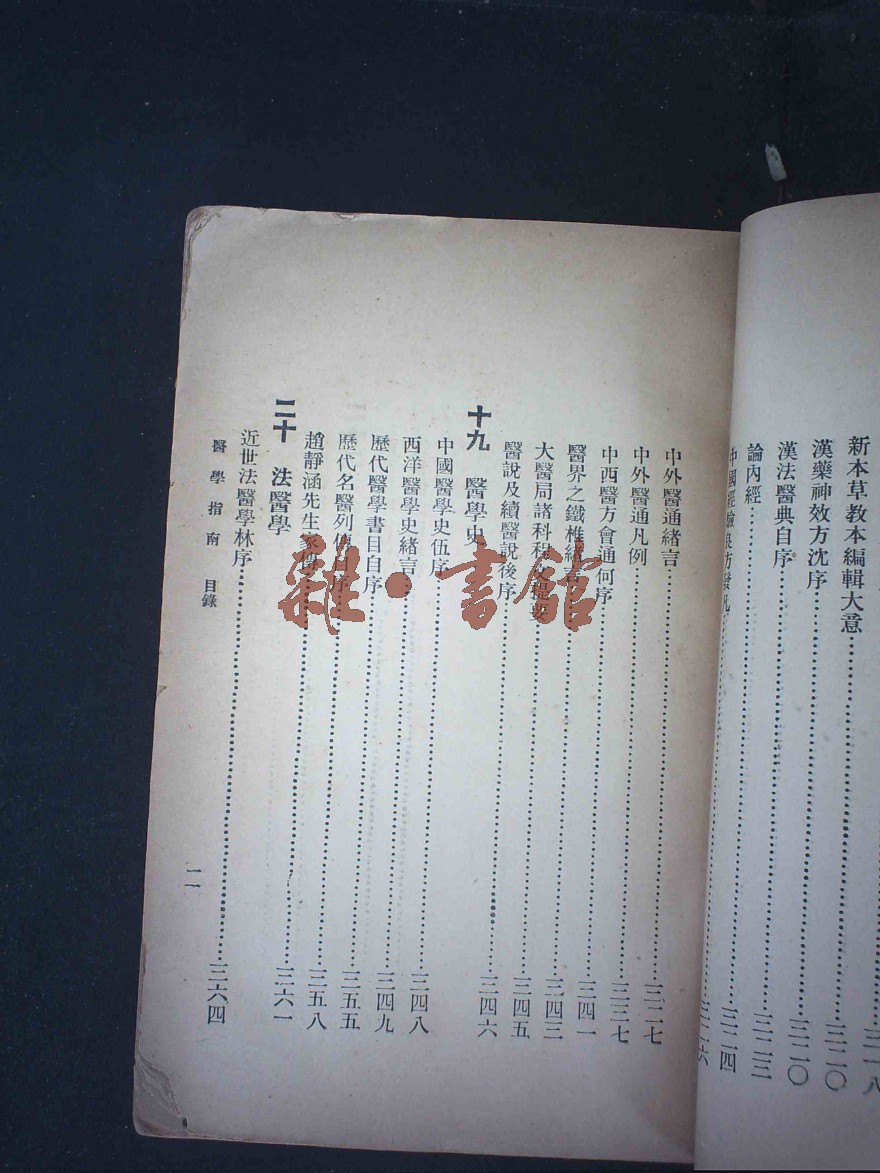 新本草教本編輯大意……三二〇
漢藥神效方沈序……三二〇
漢法醫典自序……三二三
論內經……三二四
中國經驗良方發凡……三二六
三一八
中外醫通緒言……三二七
中外醫通凡例……三三七
中西醫方會通何序……三四一
醫界之鐵椎緒言……三四三
大醫局諸科程文提要……三四五
醫說及續醫說後序……三四六
十九 醫學史
中國醫學史伍序……三四八
西洋醫學史緒言……三四九
歷代醫學書目自序……三五五
歷代名醫列傳自序……三五八
趙靜涵先生家傳……三六一
二十 法醫學
近世法醫學林序……三六四
醫學指南 目錄 一一
雜·書館